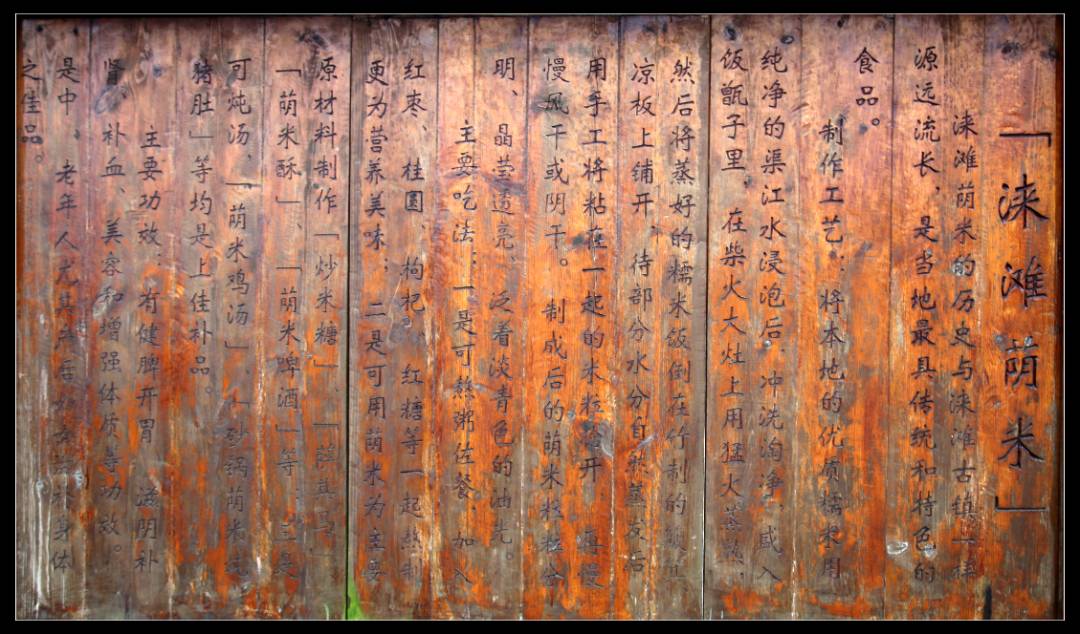 「涞滩荫米」
涞滩荫米的历史与涞滩古镇一样
源远流长，是当地最具传统和特色的
食品。
制作工艺：将本地的优质糯米用
纯净的渠江水浸泡后，冲洗淘净，盛入
饭甑子里，在柴火大灶上用猛火蒸熟，
然后将蒸好的糯米饭倒在竹制的
凉板上铺开，待部分水分自然蒸发后
用手工将粘在一起的米粒 开，再慢
慢风干或阴干。制成后的荫米粒粒分
明、晶莹透亮，泛着淡青色的油光。
主要吃法：一是可熬粥佐餐，如入
红枣、桂圆、枸杞、红糖等一起熬制
更为营养美味；二是可用荫米为主要
原材料制作「炒米糖」、
「荫米酥」、「荫米啤酒」等；三是
可炖汤，「荫米鸡汤」、「砂锅荫米
猪肚」等均是上佳补品。
主要功效：有健脾开胃、滋阴补
肾、补血、美容和增强体质等功效。
是中、老年人尤其 后 身体
之佳品。